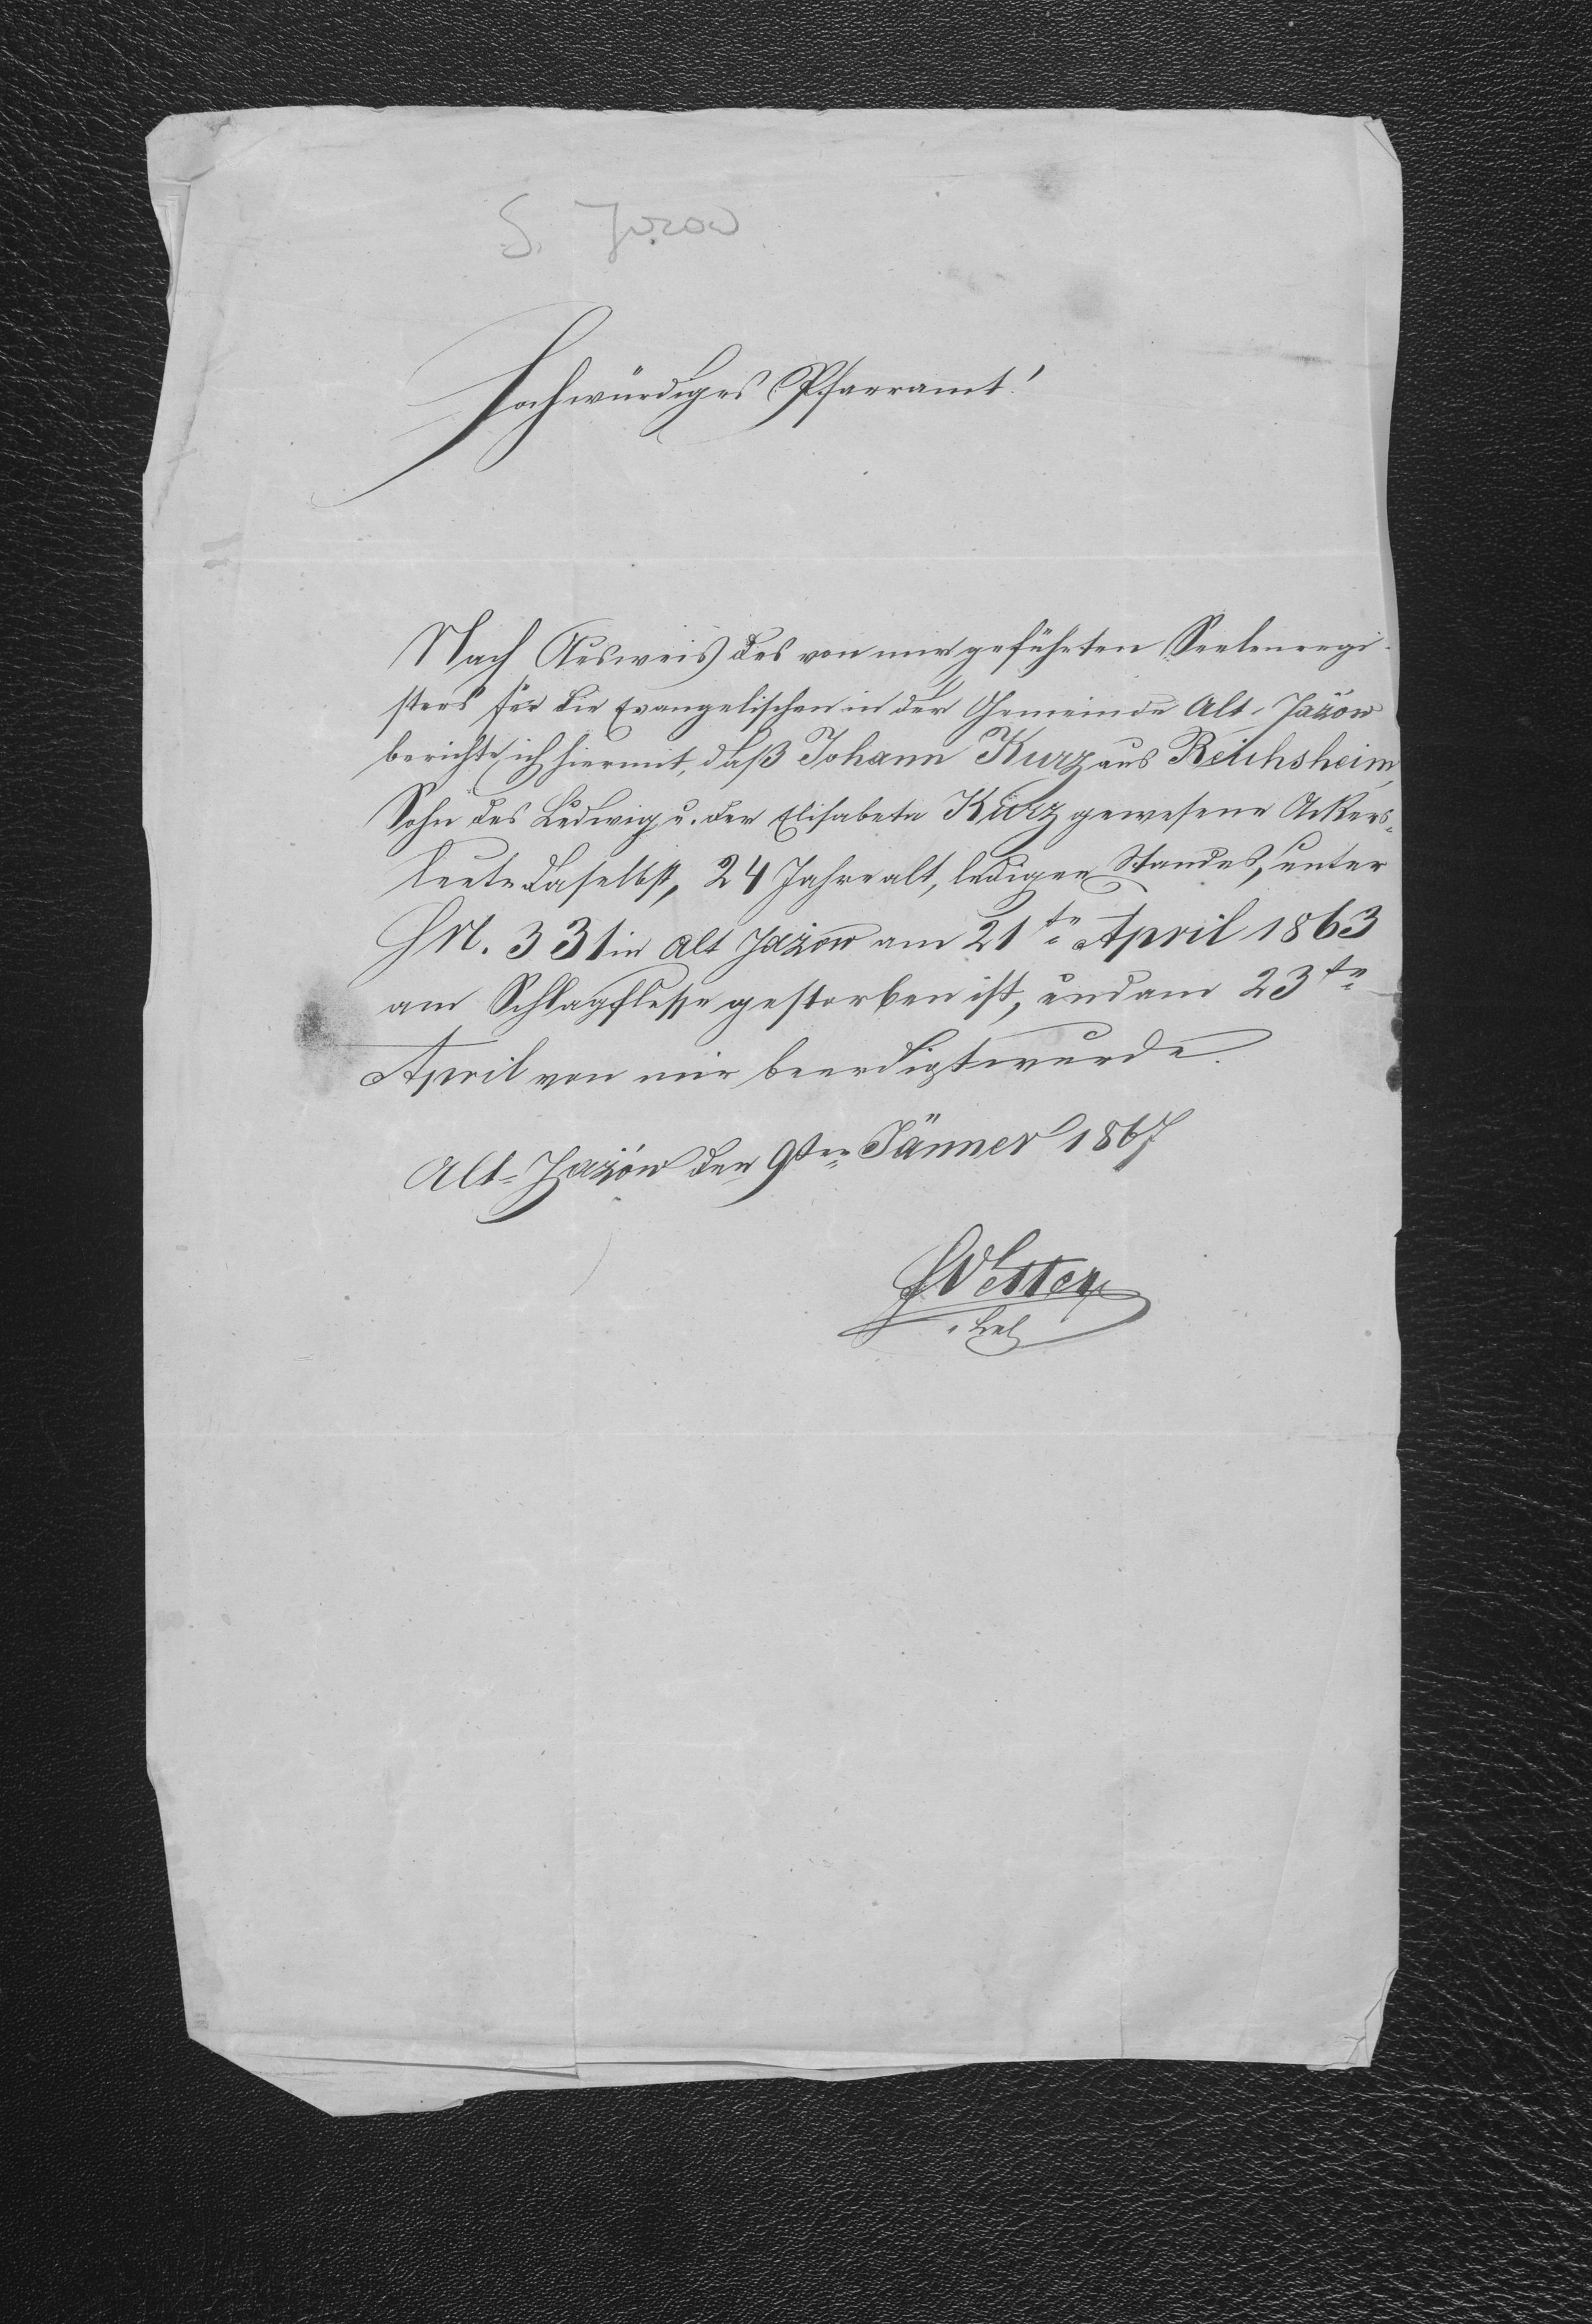 S. Jazow
Hochwürdiges Pfarramt!
Nach Ausweis des von mir geführten Seelenregi-
sters für die Evangelischen in der Gemeinde Alt-Jazów
berichte ich hiermit, daß Johann Kurz aus Reichsheim,
Sohn des Ludwig u. der Elisabeta Kurz gewesene Ackers-
leute daselbst, 24 Jahre alt, ledigen Standes, unter
HN. 331 in Alt Jazow am 21te April 1863
am Schlagflusse gestorben ist, und am 23te
April von mir beerdigt wurde.
Alt-Jazów den 9ten Jänner 1867
Vetter